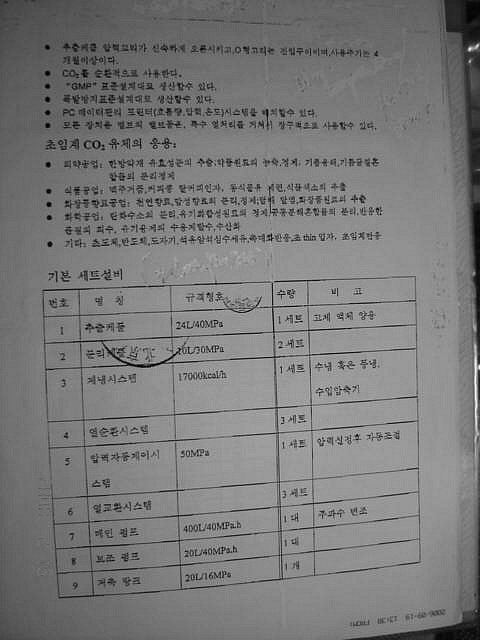 ● 추출케틀 압력고리가 신속하게 오픈시키고,O형고리는 진입구이이며,사용주기는 4
개월이상이다.
● CO₂를 순환적으로 사용한다.
● "GMP" 표준설계대로 생산할수 있다.
● 폭발방지표준설계대로 생산할수 있다.
● PC 데이터관리 프린터(흐름량,압력,온도)시스템을 배치할수 있다.
● 모든 장치용 펌프의 밸브등은, 특수 열처리를 거쳐서 장구적으로 사용할수 있다.
초임계 CO₂ 유체의 응용:
● 의약공업: 한방약재 유효성분의 추출,약물원료의 농축,정제, 기름용해,기름글결혼
합물의 분리정제
● 식품공업: 맥주거품,커피중 탈커피인자, 동식물유 제련,식품색소의 추출
● 화장품향료공업: 천연향료,합성향료의 분리,정제;담배 탈맹,화장품원료의 추출
● 화학공업: 탄화수소의 분리,유기화합성원료의 정제,공동분해혼합물의 분리,반응한
용원의 회수, 유기용제의 수용제탈수,수산화
● 기타: 초도체,반도체,도자기,석유암석심수세유,촉매화반응,초 thin 입자, 초임계반응
기본 세트설비
번호 명 칭 규격형호 수량 비 고
1 추출케틀 24L/40MPa 1 세트 고체 액체 양용
2 분리케틀 10L/30MPa 2 세트
3 제냉시스템 17000kcal/h 1 세트 수냉 혹은 풍냉,
수입압축기
4 열순환시스템 3 세트
5 압력자동제어시 50MPa 1 세트 압력설정후 자동조절
스템
6 열교환시스템 3 세트
7 메인 펌프 400L/40MPa.h 1 대 주파수 변조
8 보조 펌프 20L/40MPa.h 1 대
9 저축 탕크 20L/16MPa 1 개
2006-09-19 12:38 FROM: